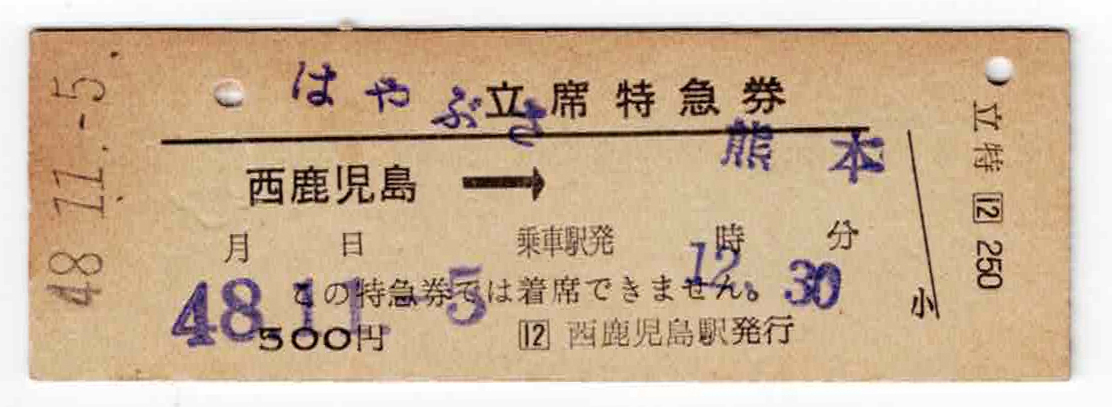 48.11.-5.
はやぶさ
立席特急券
西鹿児島 → 熊本
月 日 乗車駅発 時 分
48.11. 5 12. 30
この特急券では着席できません。
500円 12 西鹿児島駅発行
小
立特 12 250